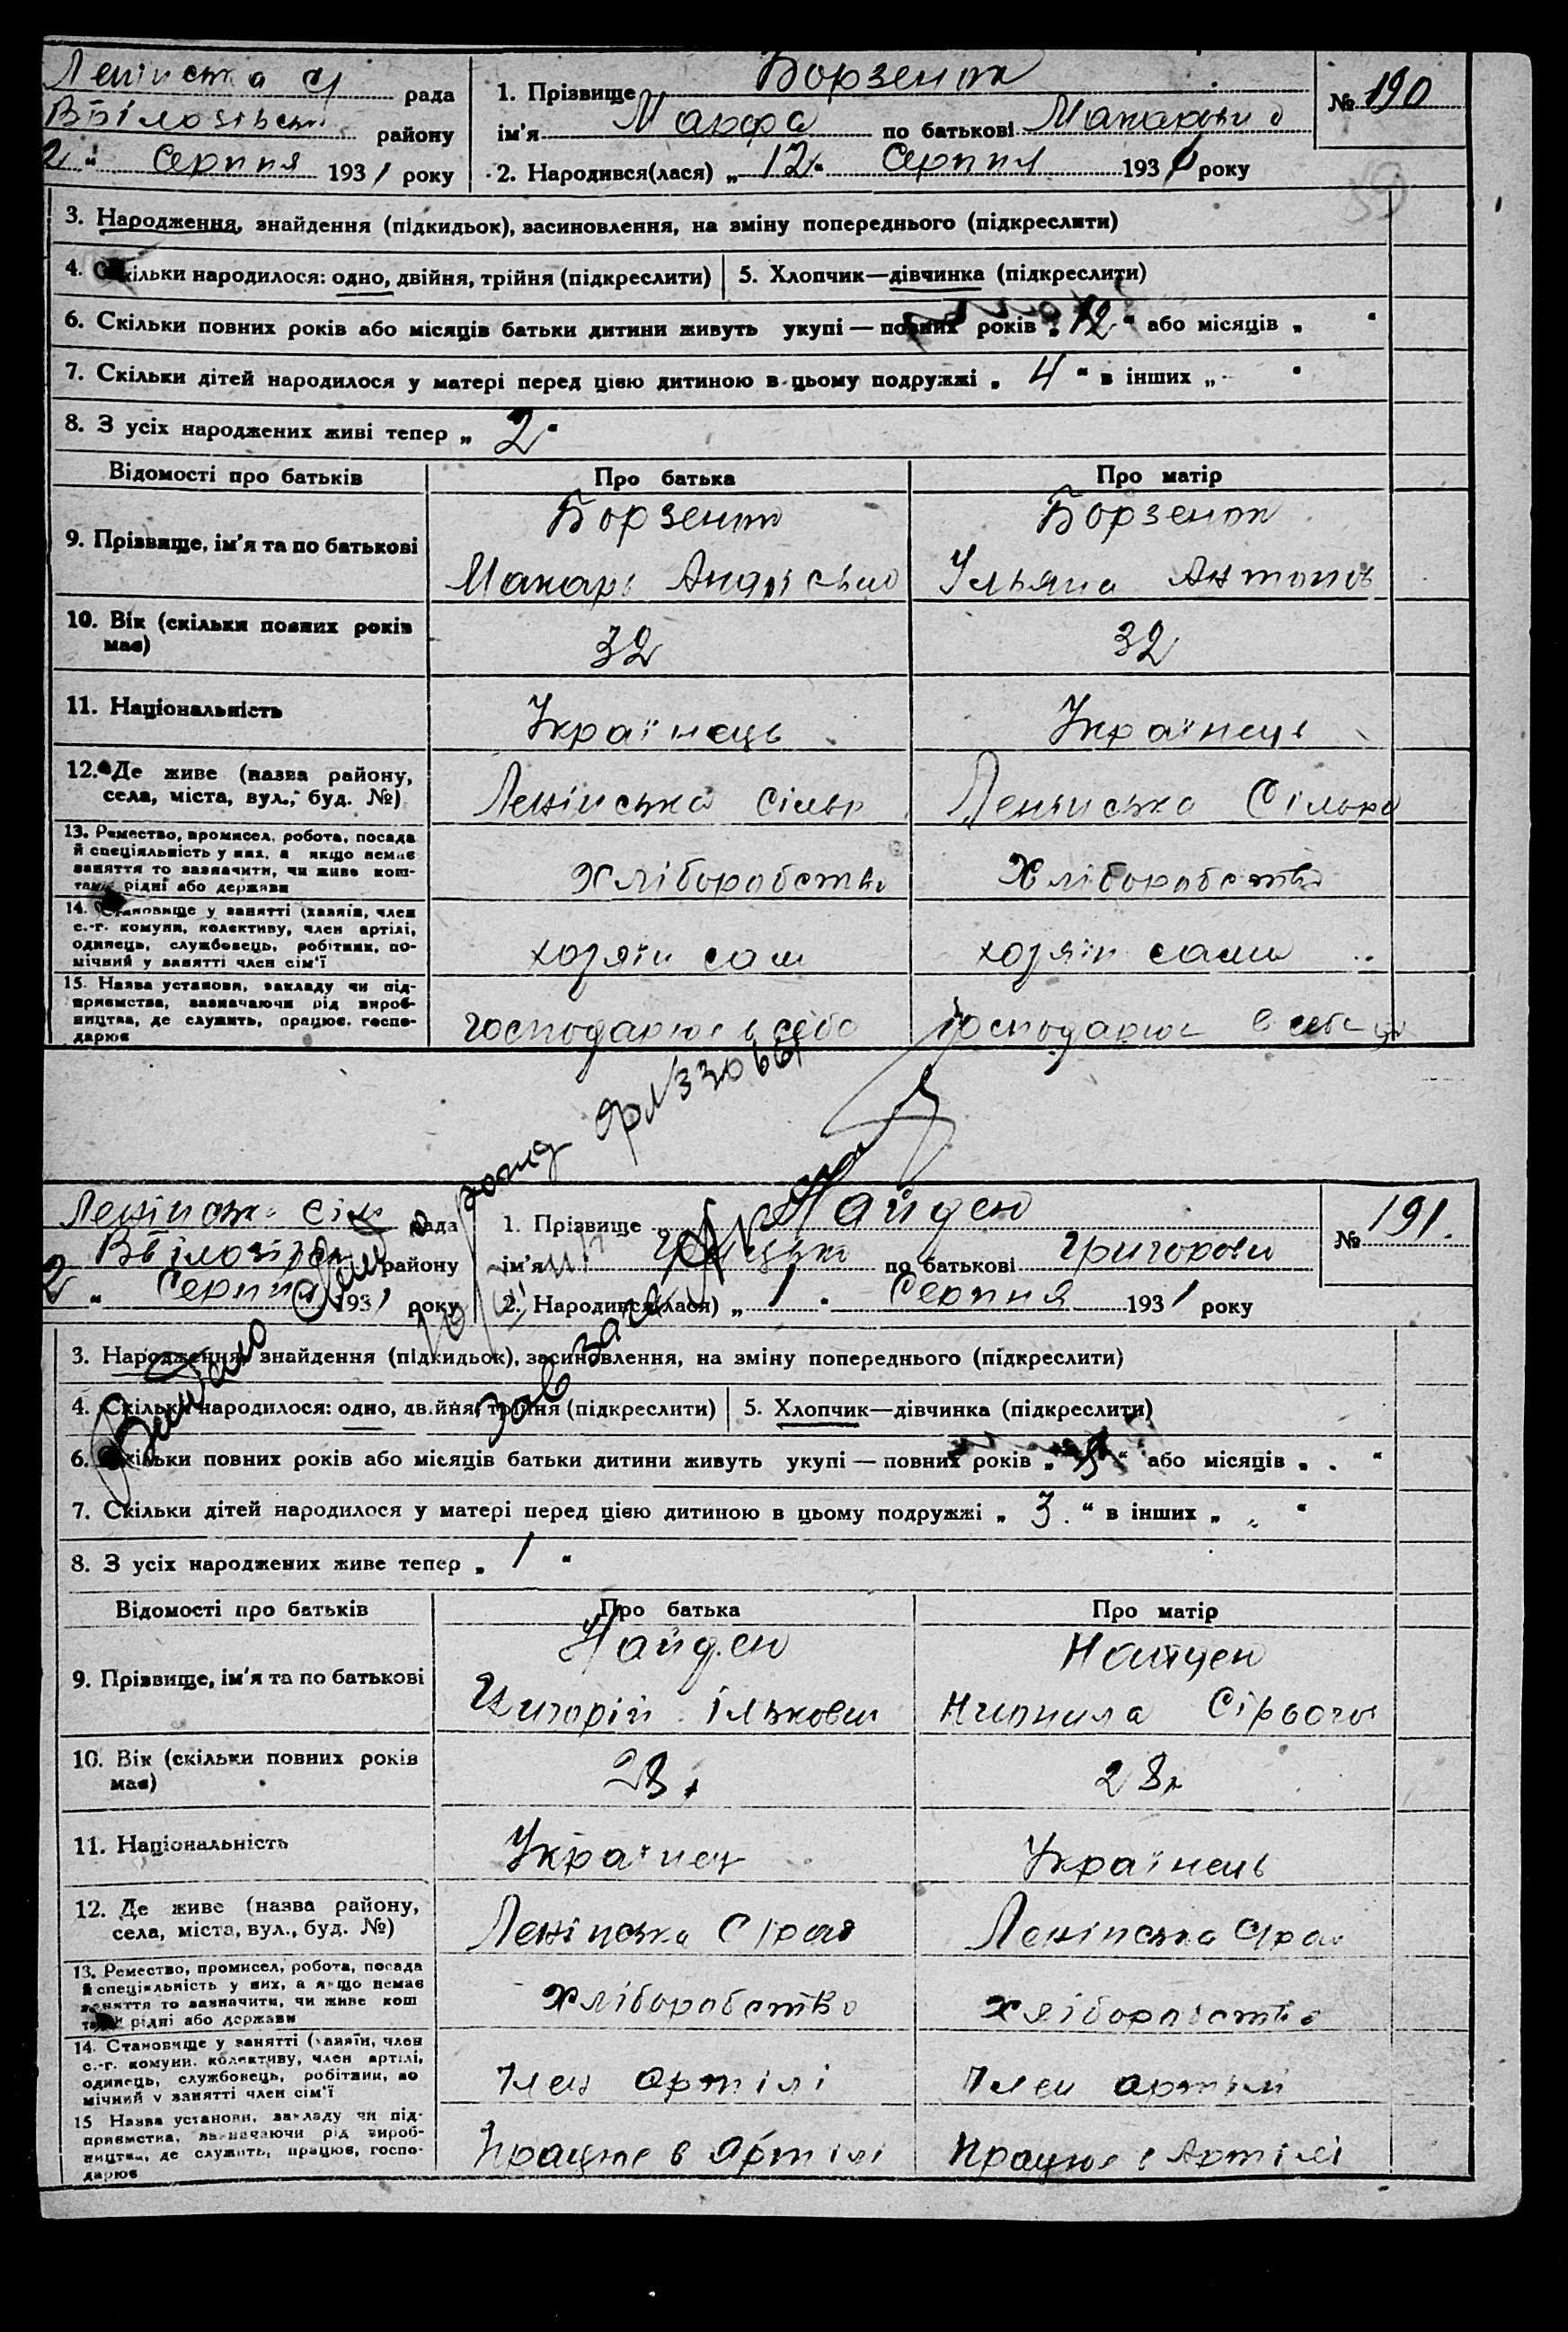 Ленінська рада
1. Прізвище Борзенок
№ 190
району
ім'я Марфа по батькові
2 " Серпня 1931 року
2. Народився(лася) „ 12 " Серпня 193 року
3. Народження, знайдення (підкидьок), засиновлення, на зміну попереднього (підкреслити)
4. Скільки народилося: одно, двійня, трійня (підкреслити)
5. Хлопчик—дівчинка (підкреслити)
6. Скільки повних років або місяців батьки дитини живуть укупі — повних років „ 12 " або місяців „ "
7. Скільки дітей народилося у матері перед цією дитиною в цьому подружжі „ 4 " в інших „ "
8. З усіх народжених живі тепер „ 2 "
Відомості про батьків
Про батька
Про матір
9. Прізвище, ім'я та по батькові
Борзенок
Макарь
Борзенок
Ульяна Антонов
10. Вік (скільки повних років
має)
32
32
11. Національність
Українець
Українець
12. Де живе (назва району,
села, міста, вул., буд. №)
Ленінська
Ленінська Сількра
13. Ремество, промисел, робота, посада
й спеціяльність у них, а якщо немає
заняття то зазначити, чи живе кош-
тами рідні або держави
Хліборобство
Хліборобство
14. Становище у занятті (хазяїн, член
с.-г. комуни, колективу, член артілі,
одинець, службовець, робітник, по-
мічний у занятті член сім'ї
хозяїн сам
хозяїн сама
15. Назва установи, закладу чи під-
приємства, зазначаючи рід вироб-
ництва, де служить, працює, госпо-
дарює
господарює в себе
господарює в себе
рада
1. Прізвище Найден
№ 191.
району
ім'я Грицько по батькові Григорови
2 " Серпня 1931 року
2. Народився(лася) „ 1 " Серпня 1931 року
3. Народження, знайдення (підкидьок), засиновлення, на зміну попереднього (підкреслити)
4. Скільки народилося: одно, двійня, трійня (підкреслити)
5. Хлопчик—дівчинка (підкреслити)
6. Скільки повних років або місяців батьки дитини живуть укупі — повних років „ " або місяців „ "
7. Скільки дітей народилося у матері перед цією дитиною в цьому подружжі „ 3. " в інших „ "
8. З усіх народжених живе тепер „ 1 "
Відомості про батьків
Про батька
Про матір
9. Прізвище, ім'я та по батькові
Найден
Ількович
Найден
10. Вік (скільки повних років
має)
28
28
11. Національність
Українец
Українець
12. Де живе (назва району,
села, міста, вул., буд. №)
Ленінська
Ленінська
13. Ремество, промисел, робота, посада
й спеціяльність у них, а якщо немає
заняття то зазначити, чи живе кош
тами рідні або держави
хліборобство
хліборобство
14. Становище у занятті (хазяїн, член
с.-г. комуни, колективу, член артілі,
одинець, службовець, робітник, по
мічний у занятті член сім'ї
Член артілі
Член артілі
15 Назва установи, закладу чи під-
приємства, зазначаючи рід вироб-
ництва, де служить, працює, госпо-
дарює
Працює в Артілі
Працює в Артілі